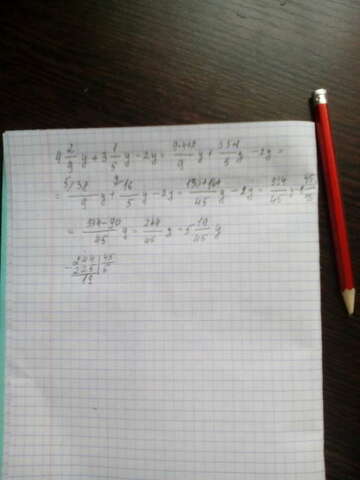 4 2/9 y + 3 1/5 y - 2y = 9·4+2/9 y + 3·5+1/5 y - 2y =
= 5/ 38/9 y + 9/ 16/5 y - 2y = 190+144/45 y - 2y = 334/45 y
= 334-90/45 y = 244/45 y = 5 19/45 y
- 244 | 45
225 | 5
19